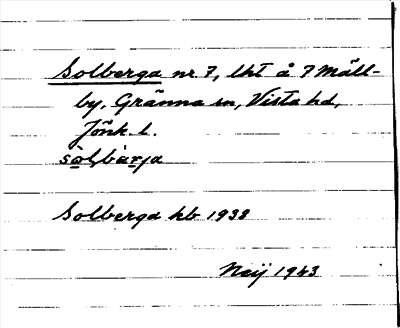 Solberga nr 7, lht å 7 Mäll-
by, Gränna sn, Vista hd,
Jönk. l.
sòlbàrja
Solberga kb 1938
Neij 1943